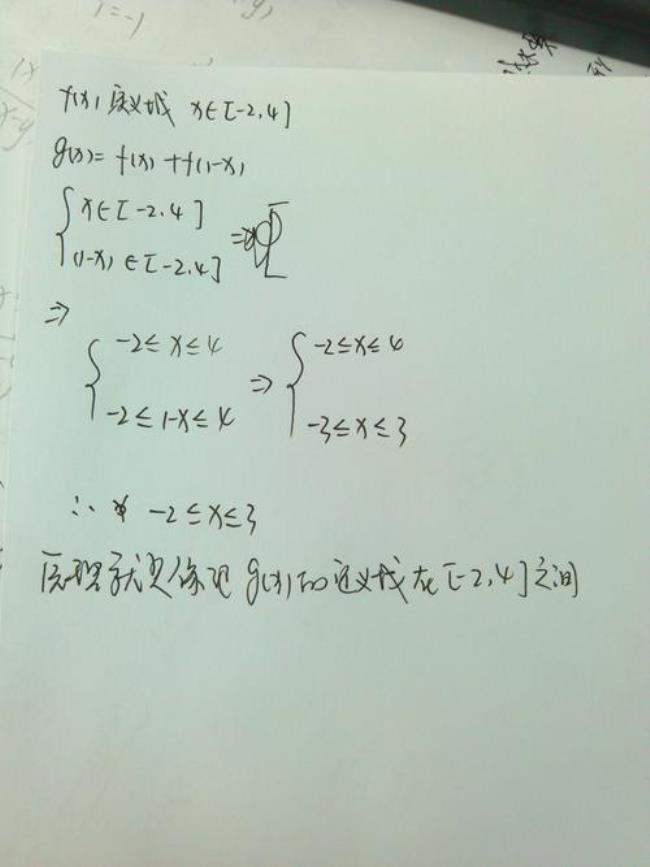 f(x)定义域 x∈[-2,4]
g(x)= f(x)+f(1-x)
{ x∈[-2,4]
(1-x)∈[-2,4] ⇒
⇒
{ -2≤x≤4 ⇒ { -2≤x≤4
-2≤1-x≤4 -3≤x≤3
∴ x -2≤x≤3
原理就是保证g(x)的定义域在[-2,4]之间
i=-1